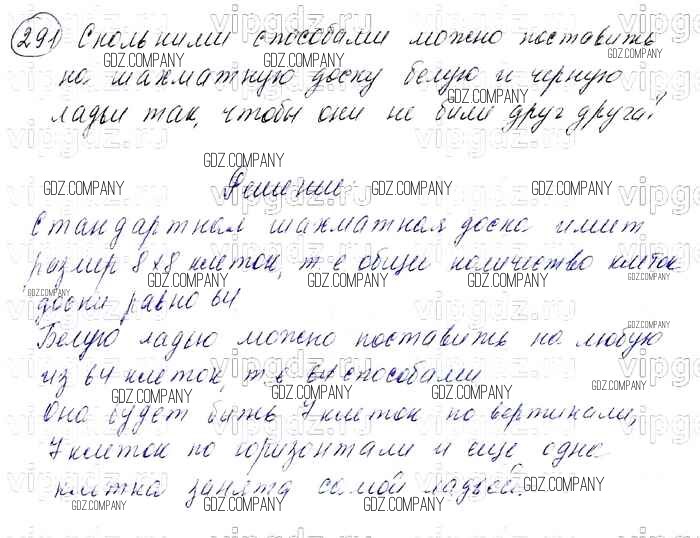 291 Сколькими способами можно поставить
на шахматную доску белую и черную
ладьи так, чтобы они не били друг друга?
Решение:
Стандартная шахматная доска имеет
размер 8х8 клеток, т.е общее количество клеток
доски равно 64
Белую ладью можно поставить на любую
из 64 клеток, т.е 64 способами
Она будет бить 7 клеток по вертикали,
7 клеток по горизонтали и еще одна
клетка занята самой ладьей.
GDZ.COMPANY
vipgdz.ru